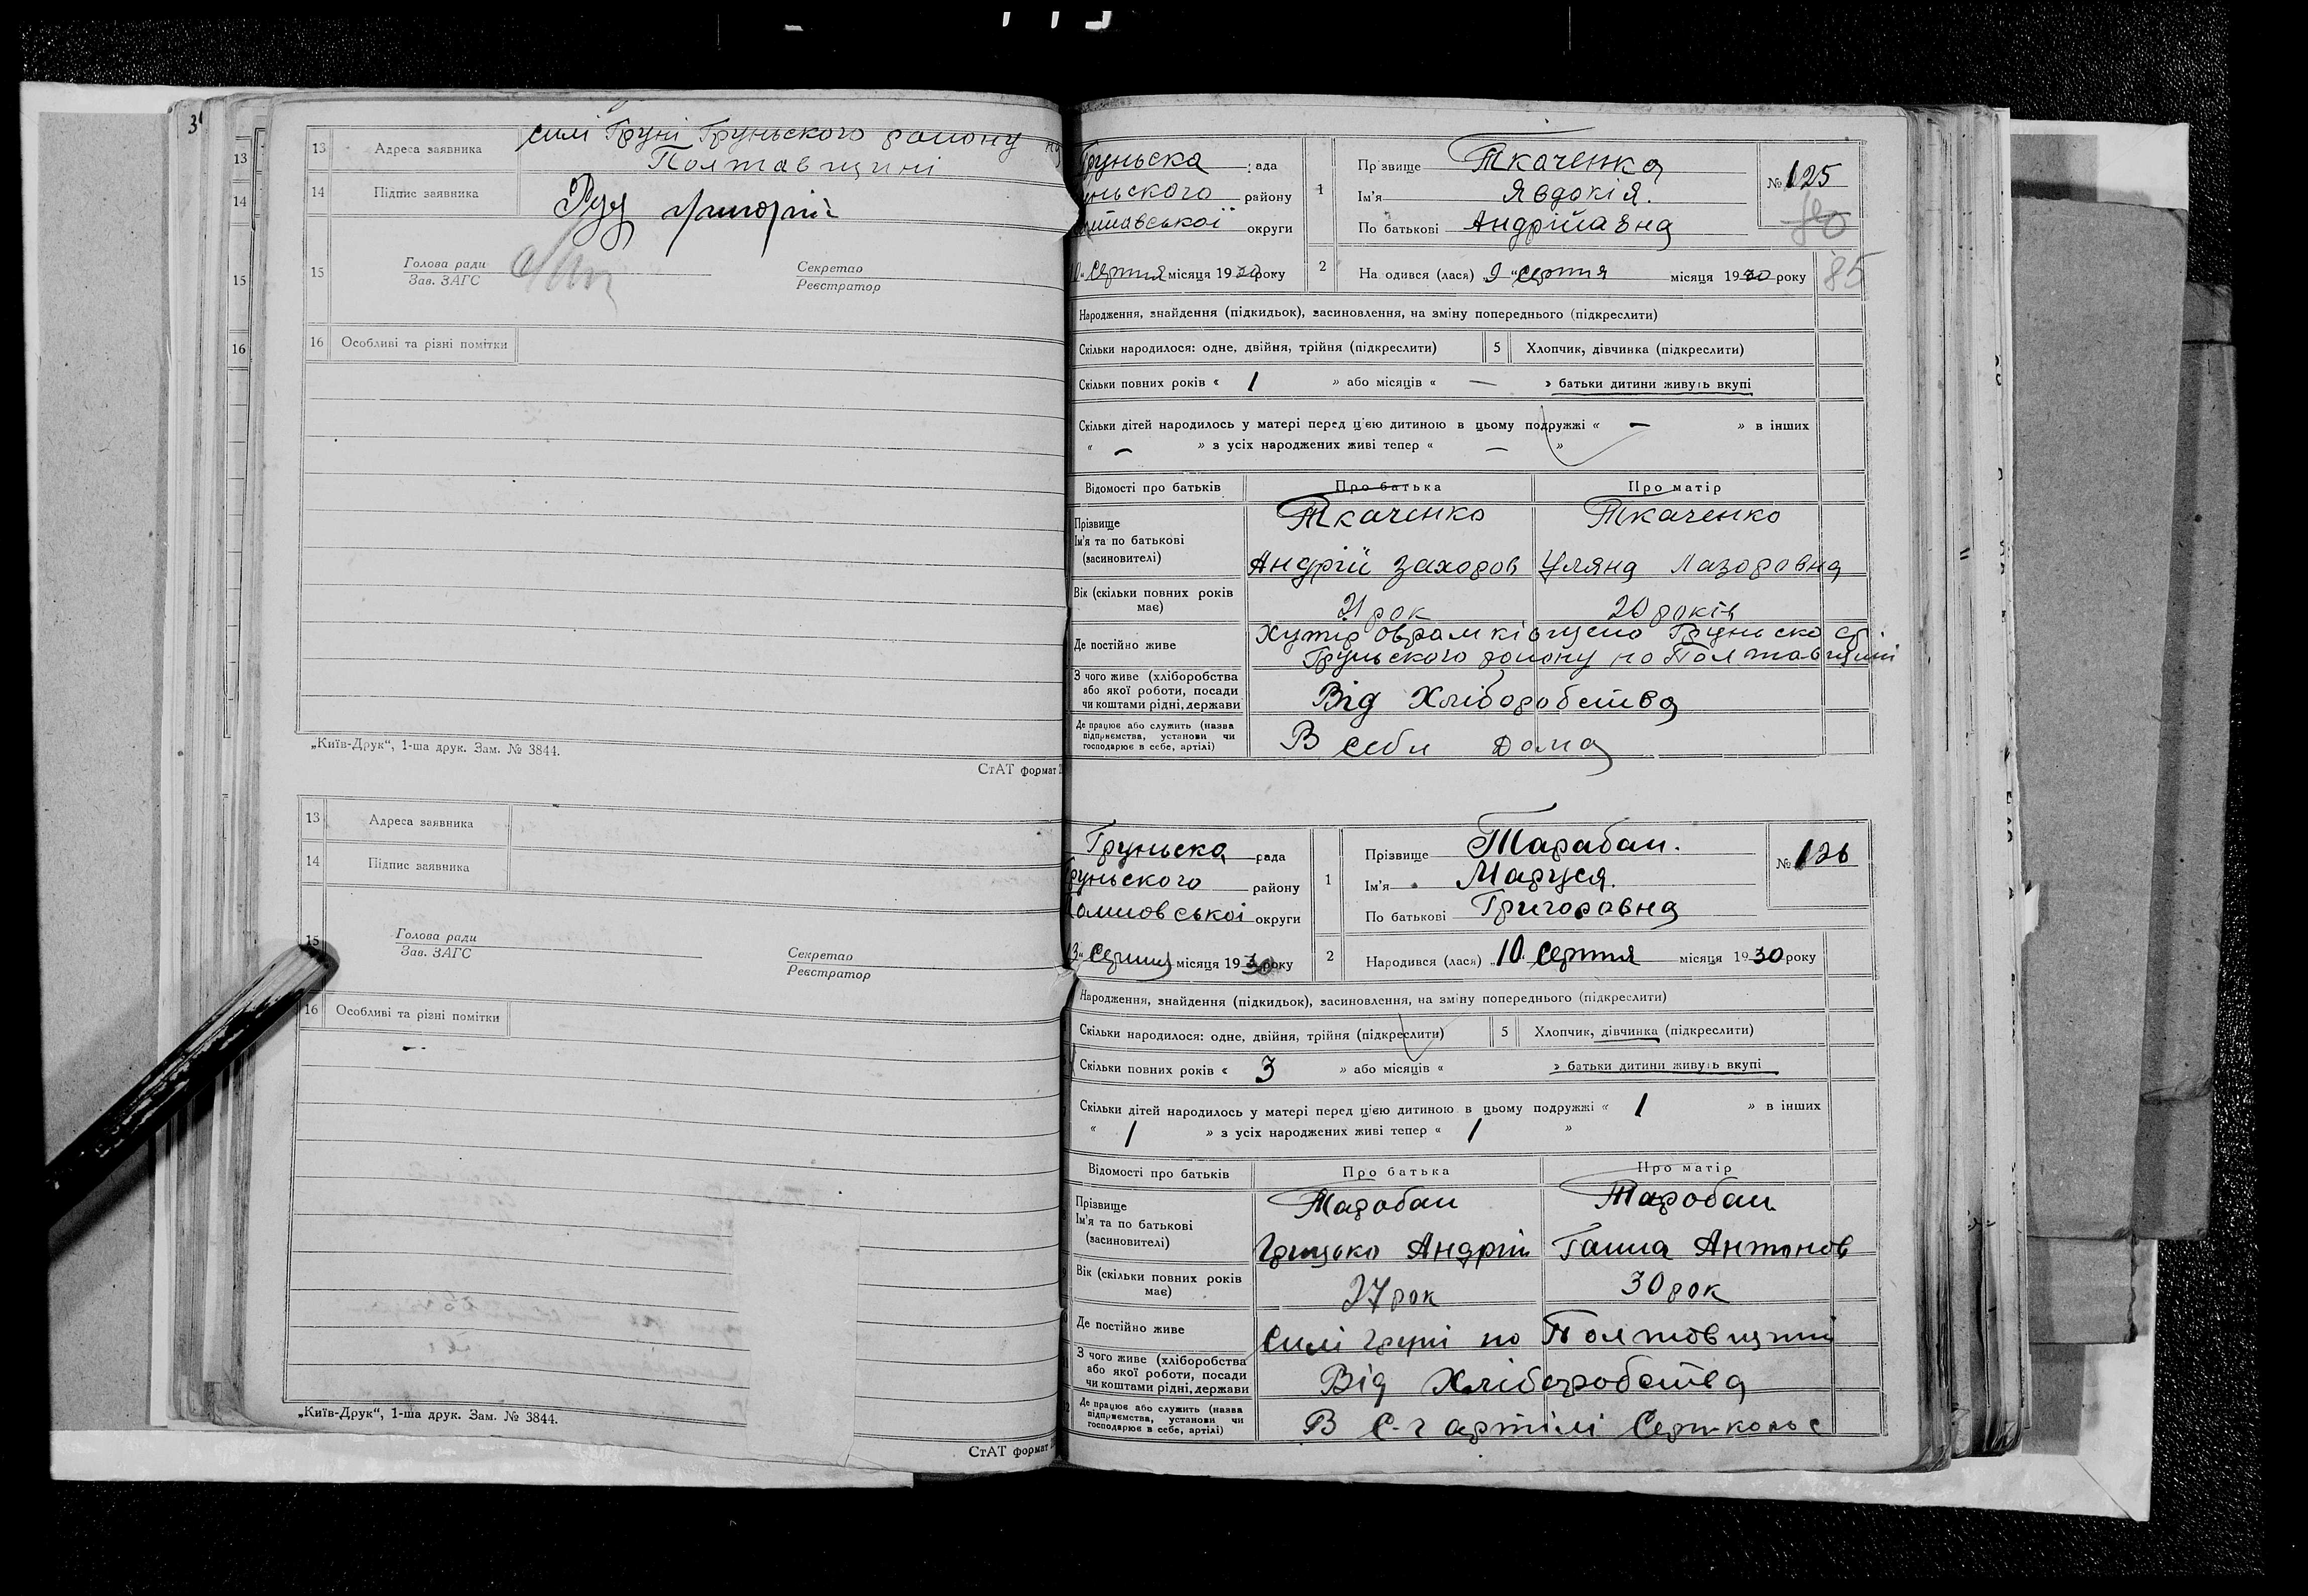 3
13
14
15
16
13 Адреса заявника силі Груні Груньского району на
Полтавщині
14 Підпис заявника Руд Григорій
15 Голова ради Секретар
Зав. ЗАГС Реєстратор
16 Особливі та різні помітки
„Київ-Друк“, 1-ша друк. Зам. № 3844.
СтАТ формат
13 Адреса заявника
14 Підпис заявника
15 Голова ради Секретар
Зав. ЗАГС Реєстратор
16 Особливі та різні помітки
„Київ-Друк“, 1-ша друк. Зам. № 3844.
СтАТ формат
Груньска рада
ньского району
округи
1
Прізвище Ткаченко
Ім'я Явдокія.
По батькові Андрійавна
№ 125
80
85
Серпня місяця 1930 року
2 На одився (лася) „9“ серпня місяця 1930 року
Народження, знайдення (підкидьок), засиновлення, на зміну попереднього (підкреслити)
Скільки народилося: одне, двійня, трійня (підкреслити) 5 Хлопчик, дівчинка (підкреслити)
Скільки повних років « 1 » або місяців « — » батьки дитини живуть вкупі
Скільки дітей народилось у матері перед цією дитиною в цьому подружжі « — » в інших
« — » з усіх народжених живі тепер « — »
Відомості про батьків Про батька Про матір
Прізвище Ткаченко Ткаченко
Ім'я та по батькові
(засиновителі) Андрій Захоров Уляна Лазоравна
Вік (скільки повних років
має) 21 рок 20 років
Де постійно живе Хутір Оврамківщено Груньско
Груньского району но Полтавщині
З чого живе (хліборобства
або якої роботи, посади
чи коштами рідні, держави Від Хліборобства
Де працює або служить (назва
підприємства, установи чи
господарює в себе, артілі) В себе дома
Груньска рада
Груньского району
округи
1
Прізвище Тарабан.
Ім'я Маруся.
По батькові Григоровна
№ 126
13“ Серпня місяця 1930 року
2 Народився (лася) „10. Серпня місяця 1930 року
Народження, знайдення (підкидьок), засиновлення, на зміну попереднього (підкреслити)
Скільки народилося: одне, двійня, трійня (підкреслити) 5 Хлопчик, дівчинка (підкреслити)
Скільки повних років « 3 » або місяців « » батьки дитини живуть вкупі
Скільки дітей народилось у матері перед цією дитиною в цьому подружжі « 1 » в інших
« 1 » з усіх народжених живі тепер « 1 »
Відомості про батьків Про батька Про матір
Прізвище Таробан Таробан
Ім'я та по батькові
(засиновителі) Грицько Андрій Ганна Антонов
Вік (скільки повних років
має) 27 рок 30 рок
Де постійно живе Силі Груні но Полтовщині
З чого живе (хліборобства
або якої роботи, посади
чи коштами рідні, держави Від Хліборобства
Де працює або служить (назва
підприємства, установи чи
господарює в себе, артілі) В С-г артілі